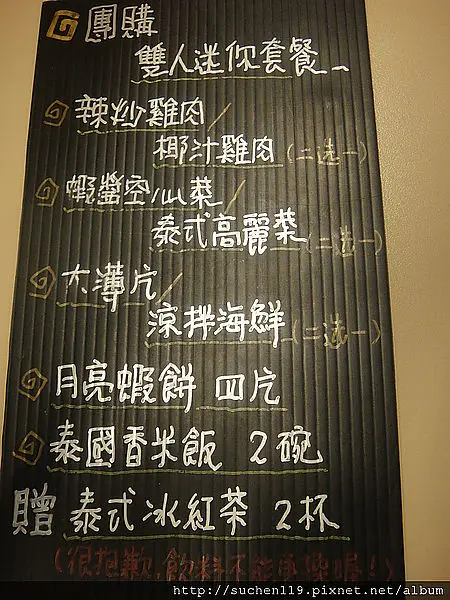 團購
雙人迷你套餐
辣炒雞肉/
椰汁雞肉(二选一)
蝦醬空心菜/
泰式高麗菜(二选一)
大薄片/
涼拌海鮮(二选一)
月亮蝦餅 四片
泰國香米飯 2碗
贈 泰式冰紅茶 2杯
(很抱歉,飲料不能更換喔!)
http://suchen119.pixnet.net/album